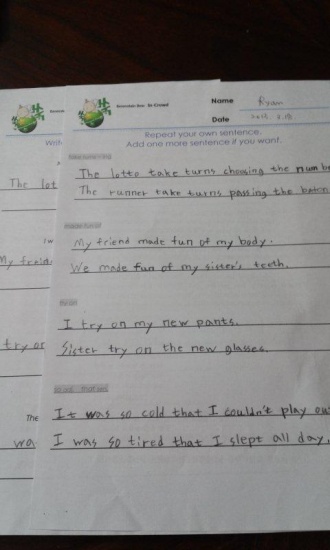 Name Ryan
Date
Repeat your own sentence.
Add one more sentence if you want.
The lotto take turns choosing the numbe
The runner take turns passing the baton
made fun of
My friend made fun of my body.
We made fun of my sister's teeth.
try on
I try on my new pants.
Sister try on the new glasses.
so adj. that
It was so cold that I couldn't play out
I was so tired that I slept all day.
Writ
The lot
My frien
try on
The
wa